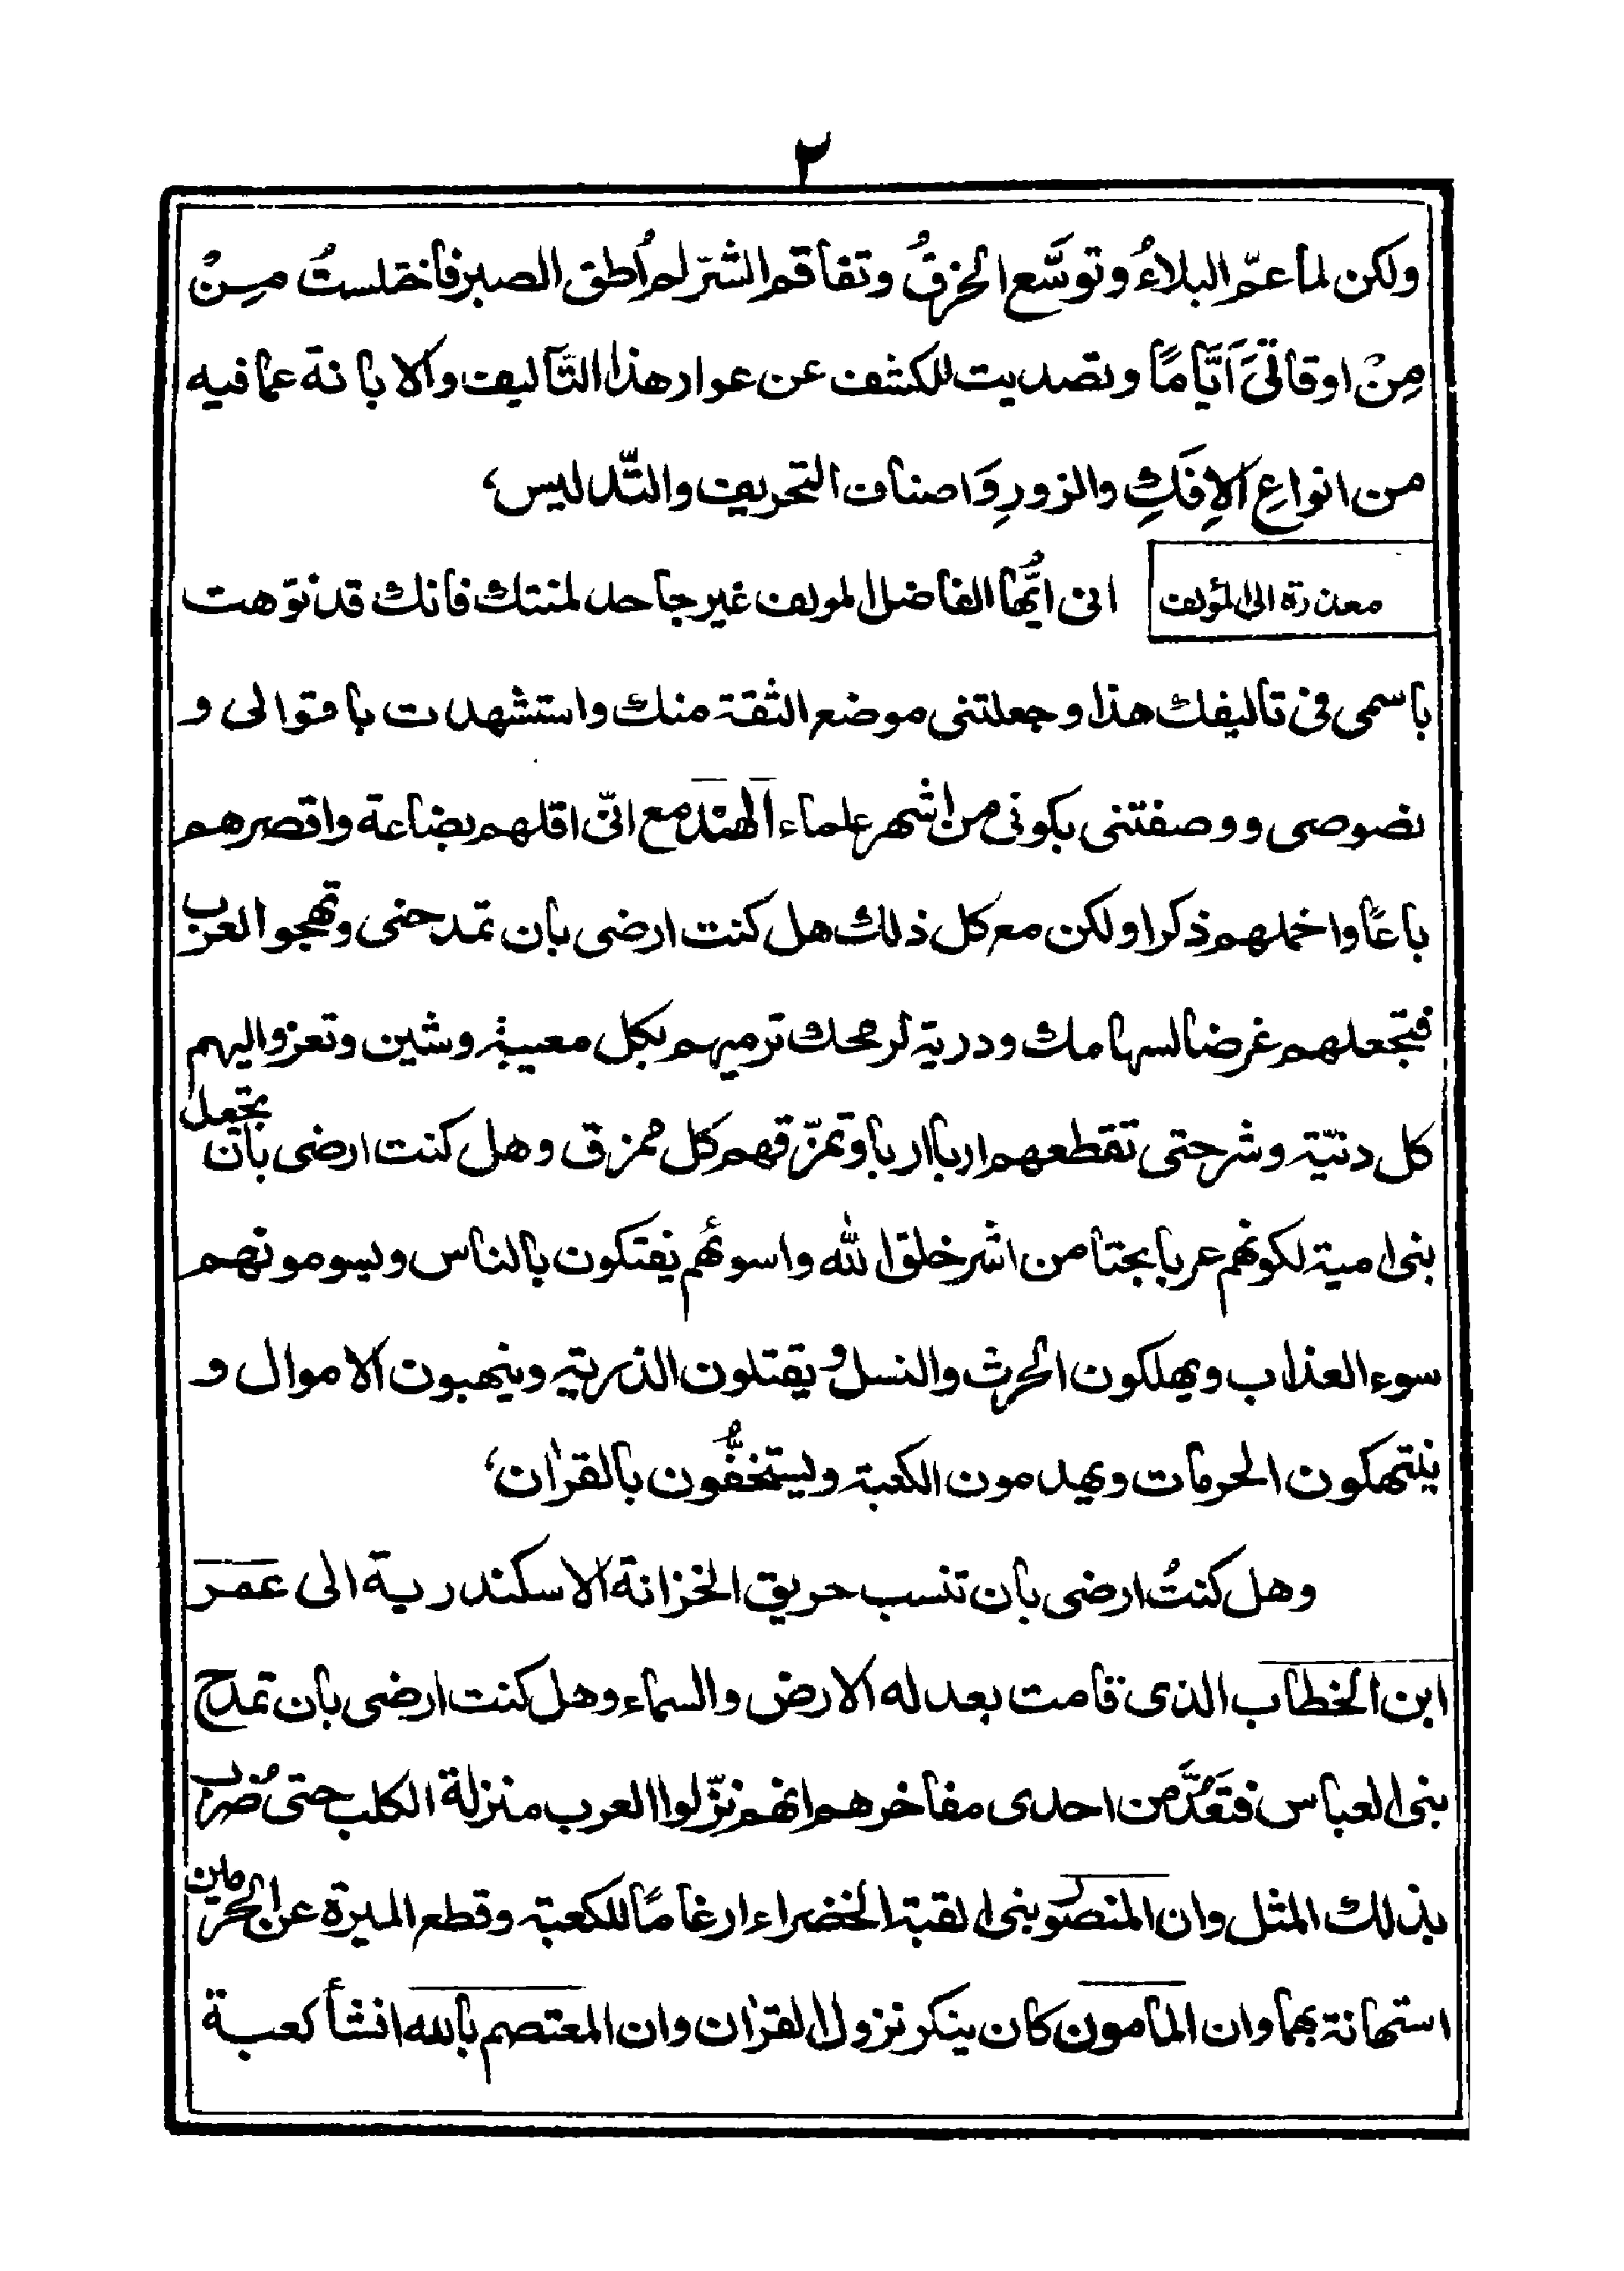 ٢
ولكن لما عمّ البلاءُ وتوسَّع الخرقُ وتفاقم الشرّ لم اُطق الصبر فاختلستُ مِنْ
مِنْ اوقاتى اَيَّامًا وتصديت للكشف عن عوار هذا التَّاليف والابانة عما فيه
من انواعِ الاِفكِ والزورِ وَاصناف التحريف والتَّدليس،
معذرة الى المؤلف
انى ايُّها الفاضل المولف غير جاحد لمنتك فانك قد نوّهت
باسمى فى تاليفك هذا وجعلتنى موضع الثقة منك واستشهدت باقوالى و
نصوصى ووصفتنى بكونى من اشهر علماء الهند مع انّى اقلهم بضاعة واقصرهم
باعًا واخملهم ذكرا ولكن مع كل ذلك هل كنت ارضى بان تمدحنى وتهجو العرب
فتجعلهم غرضا لسهامك ودرية لرمحك ترميهم بكل معيبة وشين وتعزو اليهم
كل دنيّة وشر حتى تقطعهم اربا اربا وتمزّقهم كل ممزق وهل كنت ارضى بان تجعل
بنى امية لكونهم عربا بحتا من اشر خلق الله واسوئهم يفتكون بالناس ويسومونهم
سوء العذاب ويهلكون الحرث والنسل ويقتلون الذرية وينهبون الاموال و
ينتهكون الحرمات ويهدمون الكعبة ويستخفُّون بالقران،
وهل كنتُ ارضى بان تنسب حريق الخزانة الاسكندرية الى عمر
ابن الخطاب الذى قامت بعدله الارض والسماء وهل كنت ارضى بان تمدح
بنى العباس فتَعُدَّ من احدى مفاخرهم انهم نزّلوا العرب منزلة الكلب حتى ضُرب
بذلك المثل وان المنصور بنى القبة الخضراء ارغامًا للكعبة وقطع الميرة عن الحرمين
استهانة بهما وان المامون كان ينكر نزول القران وان المعتصم بالله انشأ كعبة